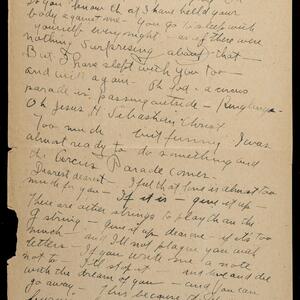 Do you know that I have held your
body against me – You go to sleep with
yourself every night – as if there were
nothing surprising about that –
But I have slept with you too –
and will again – Oh God – a circus
parade is passing outside – Ringlings
Oh Jesus H. Sebastian Christ.
Too much but funny. I was
almost ready to do something and
the Circus Parade comes –
Dearest dearest – I feel that love is almost too
much for you – If it is – give it up
There are other strings to play than the
G string – give it up dear one – if it's too
much – and I'll not plague you with
letters – If you write me a note
not to – I'll stop it and live and die
with the dream of you – and you can
go away – This because of the